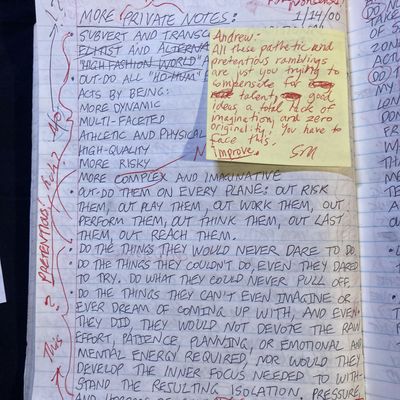 MORE PRIVATE NOTES:
1/14/00
• SUBVERT AND TRANSC
ELITIST AND ALTERNA
"HIGH FASHION WORLD" A
• OUT-DO ALL "HO-HUM" E
ACTS BY BEING:
MORE DYNAMIC
MULTI-FACETED
ATHLETIC AND PHYSICAL
HIGH-QUALITY
MORE RISKY
MORE COMPLEX AND IMAGINATIVE
• OUT-DO THEM ON EVERY PLANE: OUT RISK
THEM, OUT PLAY THEM, OUT WORK THEM, OUT
PERFORM THEM, OUT THINK THEM, OUT LAST
THEM, OUT REACH THEM.
• DO THE THINGS THEY WOULD NEVER DARE TO DO
• DO THE THINGS THEY COULDN'T DO, EVEN THEY DARED
TO TRY. DO WHAT THEY COULD NEVER PULL OFF.
• DO THE THINGS THEY CAN'T EVEN IMAGINE OR
EVER DREAM OF COMING UP WITH, AND EVEN
THEY DID, THEY WOULD NOT DEVOTE THE RAW
EFFORT, PATIENCE, PLANNING, OR EMOTIONAL AND
MENTAL ENERGY REQUIRED, NOR WOULD THEY
DEVELOP THE INNER FOCUS NEEDED TO WITH-
STAND THE RESULTING ISOLATION, PRESSURE
Andrew:
All these pathetic and
pretentious ramblings
are just you trying to
compensate for
talent, good
ideas, a total lack of
imagination, and zero
originality. You have to
face this.
Improve. SM
PRETENTIOUS!
This